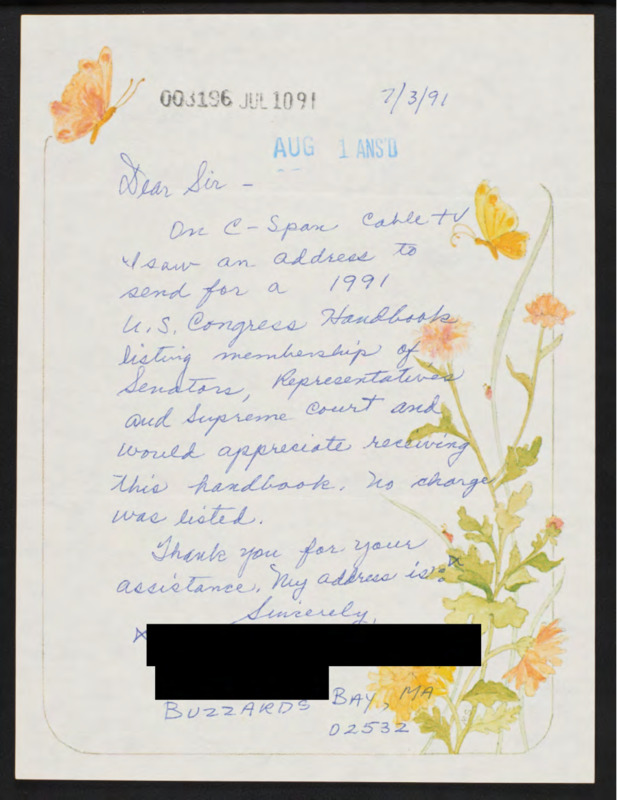 003196 JUL 10 91
7/3/91
AUG 1 ANS'D
Dear Sir -
On C-Span Cable TV
I saw an address to
send for a 1991
U.S. Congress Handbook
listing membership of
Senators, Representatives
and Supreme Court and
would appreciate receiving
this handbook. No charge
was listed.
Thank you for your
assistance. My address is:
Sincerely,
BUZZARDS BAY, MA
02532